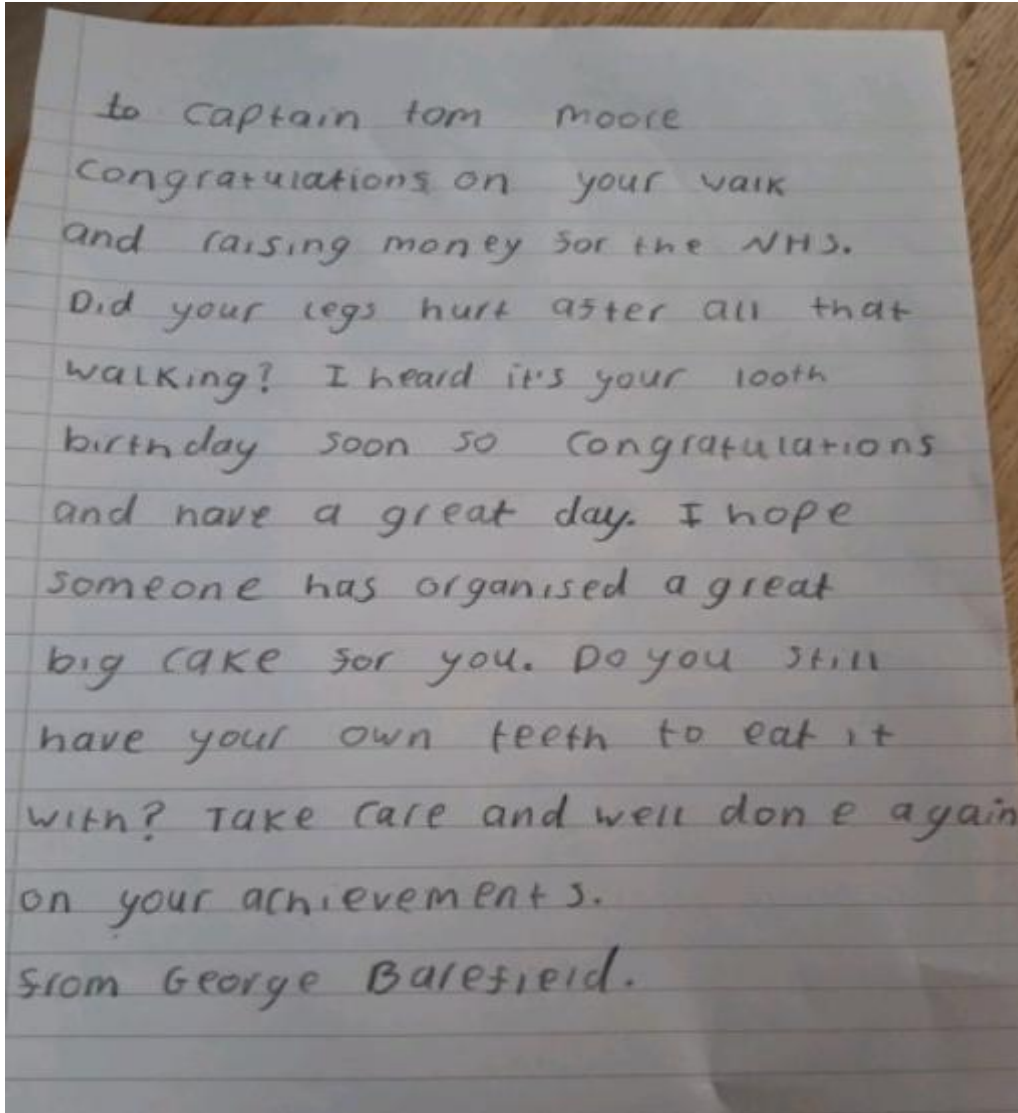 to captain tom moore
congratulations on your walk
and raising money for the NHS.
Did your legs hurt after all that
walking? I heard it's your 100th
birthday soon so congratulations
and have a great day. I hope
someone has organised a great
big cake for you. Do you still
have your own teeth to eat it
with? Take care and well done again
on your achievements.
from George Barefield.